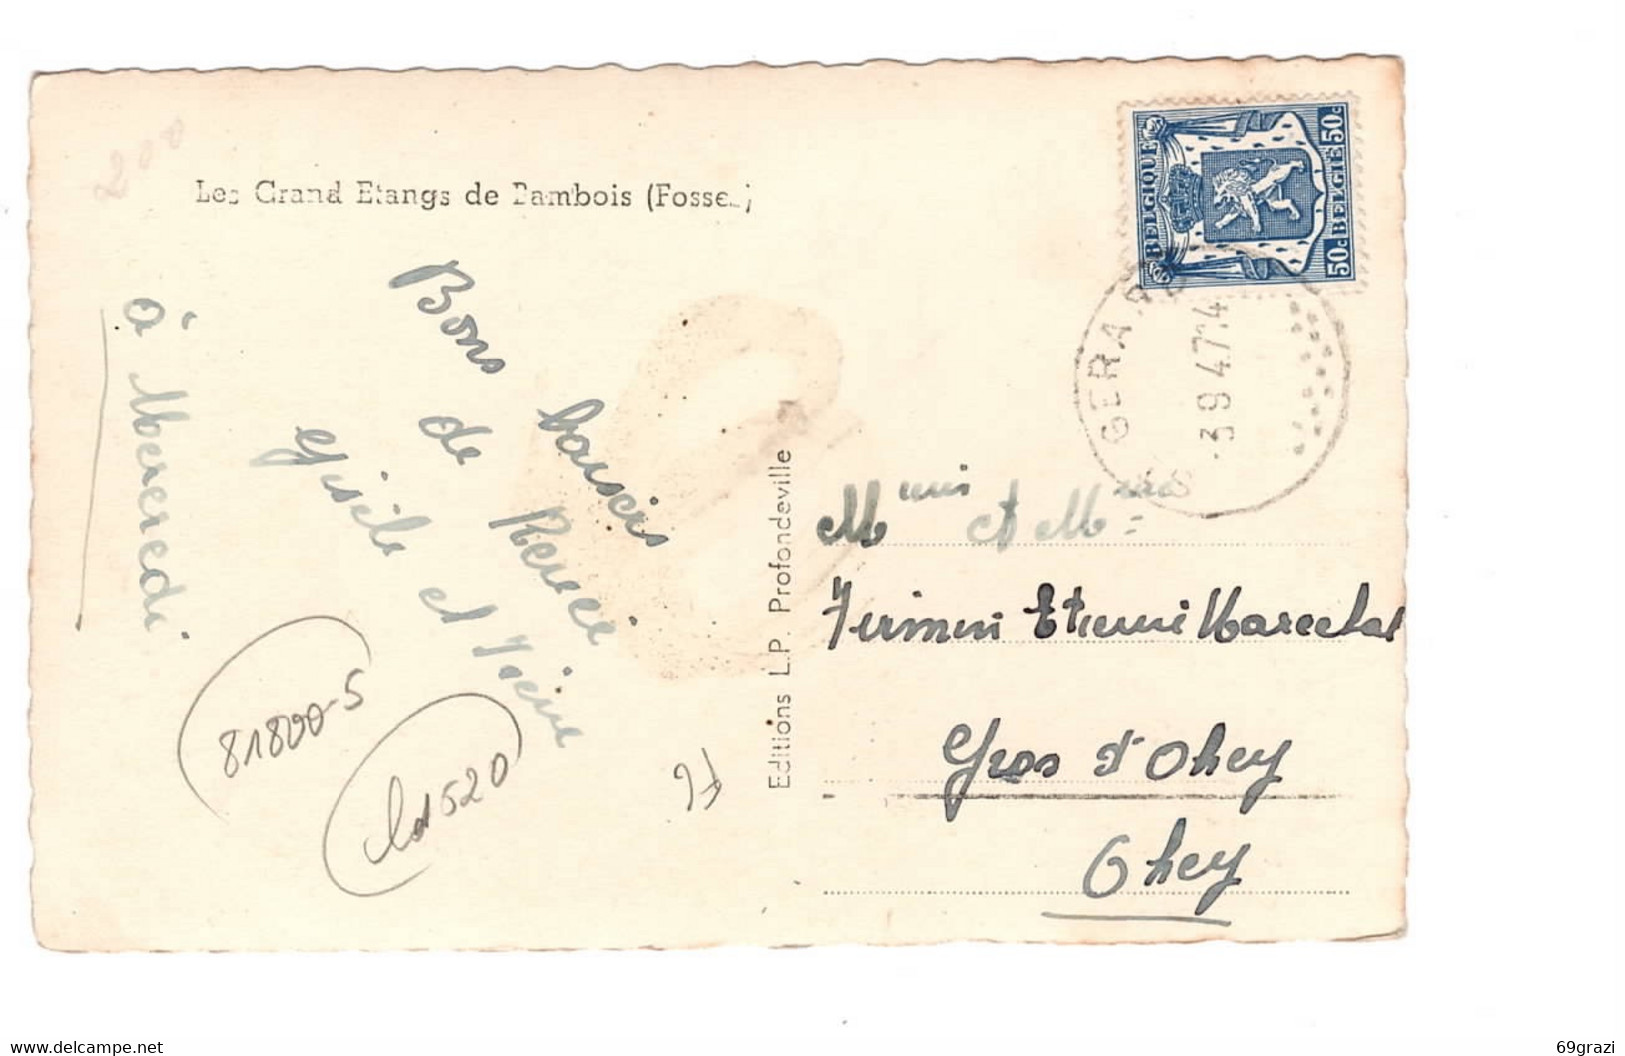 200
Les Grand Etangs de Bambois (Fosses)
Bons baisers
de Renée
Gisèle et
à Mercredi
81800-5
520
F6
Editions L.P. Profondeville
BELGIQUE 50c
50c BELGIE
GERA
3 9 47 14
et
Firmin Etienne Marechal
Gros d'Ohey
Ohey
delcampe.net
69grazi